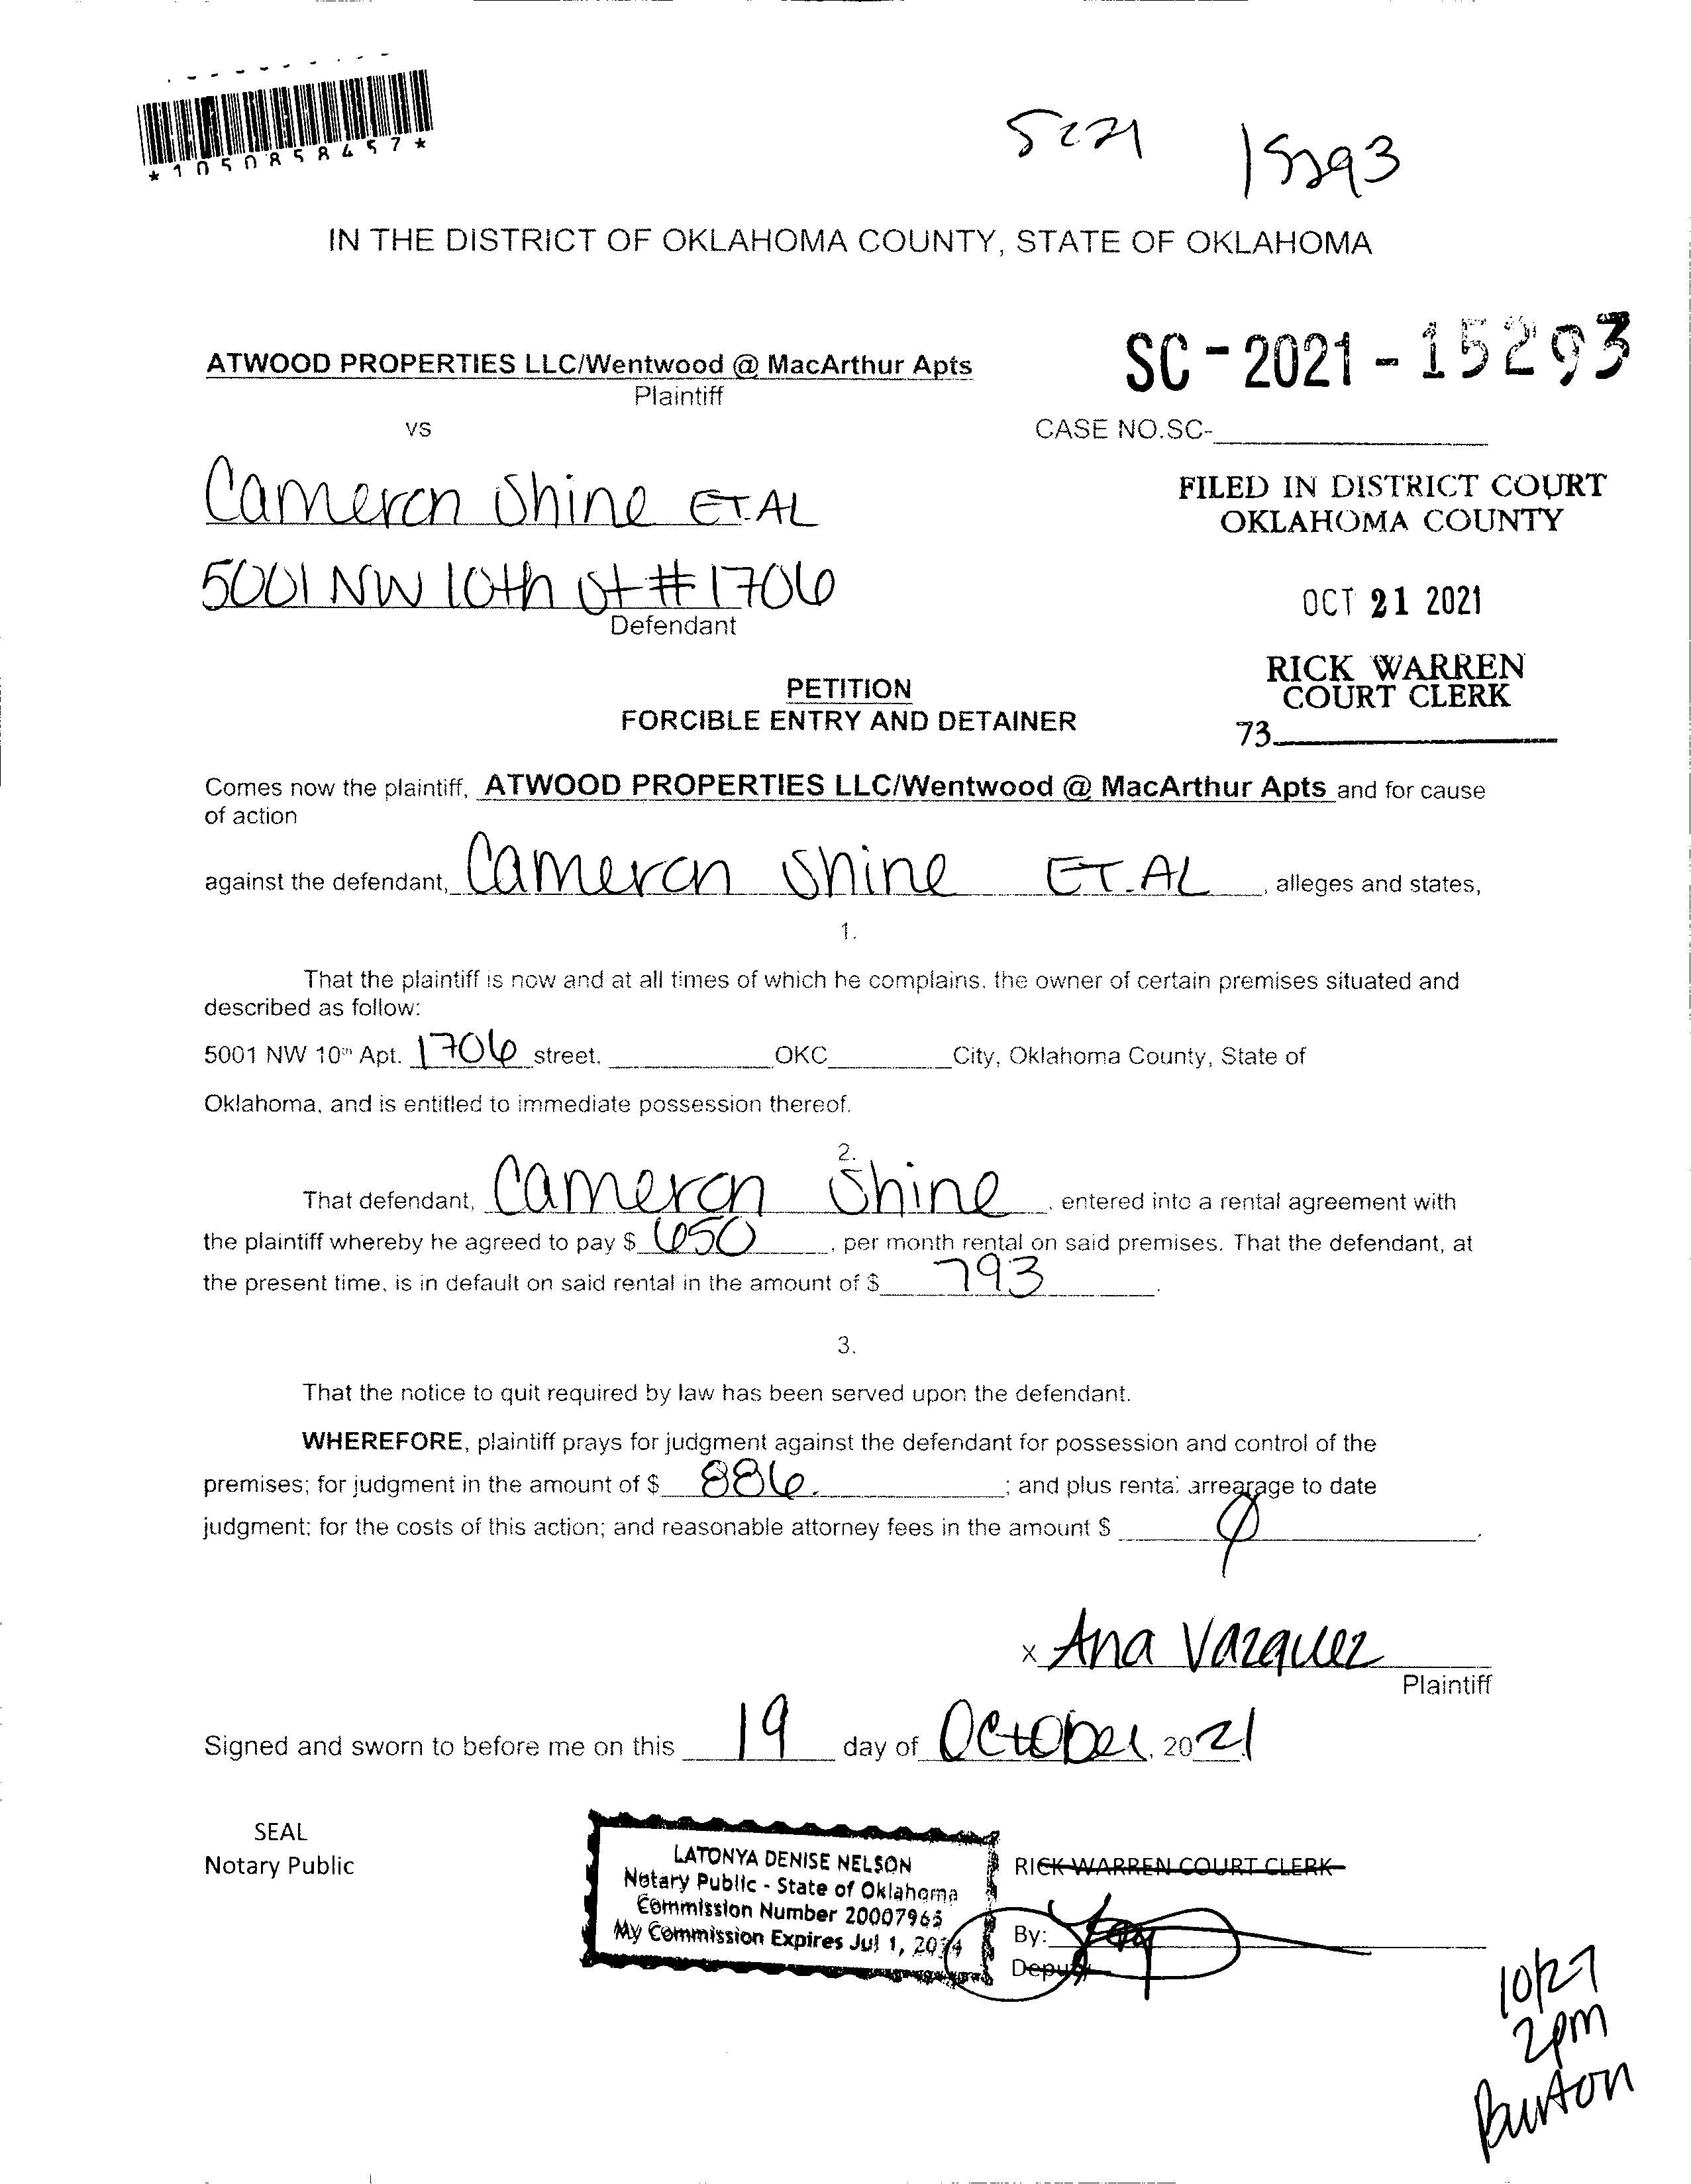 *1050858457*
SC21 15293
IN THE DISTRICT OF OKLAHOMA COUNTY, STATE OF OKLAHOMA
ATWOOD PROPERTIES LLC/Wentwood @ MacArthur Apts
Plaintiff
SC-2021-15293
vs
CASE NO.SC-
Cameron Shine ET.AL
FILED IN DISTRICT COURT
OKLAHOMA COUNTY
5001 NW 10th St # 1706
Defendant
OCT 21 2021
RICK WARREN
COURT CLERK
73
PETITION
FORCIBLE ENTRY AND DETAINER
Comes now the plaintiff, ATWOOD PROPERTIES LLC/Wentwood @ MacArthur Apts and for cause
of action
against the defendant, Cameron Shine ET.AL, alleges and states,
1.
That the plaintiff is now and at all times of which he complains, the owner of certain premises situated and
described as follow:
5001 NW 10th Apt. 1706 street, OKC City, Oklahoma County, State of
Oklahoma, and is entitled to immediate possession thereof.
2.
That defendant, Cameron Shine, entered into a rental agreement with
the plaintiff whereby he agreed to pay $ 650, per month rental on said premises. That the defendant, at
the present time, is in default on said rental in the amount of $ 793.
3.
That the notice to quit required by law has been served upon the defendant.
WHEREFORE, plaintiff prays for judgment against the defendant for possession and control of the
premises; for judgment in the amount of $ 886. ; and plus rental arrearage to date
judgment; for the costs of this action; and reasonable attorney fees in the amount $ Ø.
x Ana Vazquez
Plaintiff
Signed and sworn to before me on this 19 day of October, 2021
SEAL
Notary Public
LATONYA DENISE NELSON
Notary Public - State of Oklahoma
Commission Number 20007965
My Commission Expires Jul 1, 2024
RICK WARREN COURT CLERK
By:
Deputy
10/27
2pm
Burton